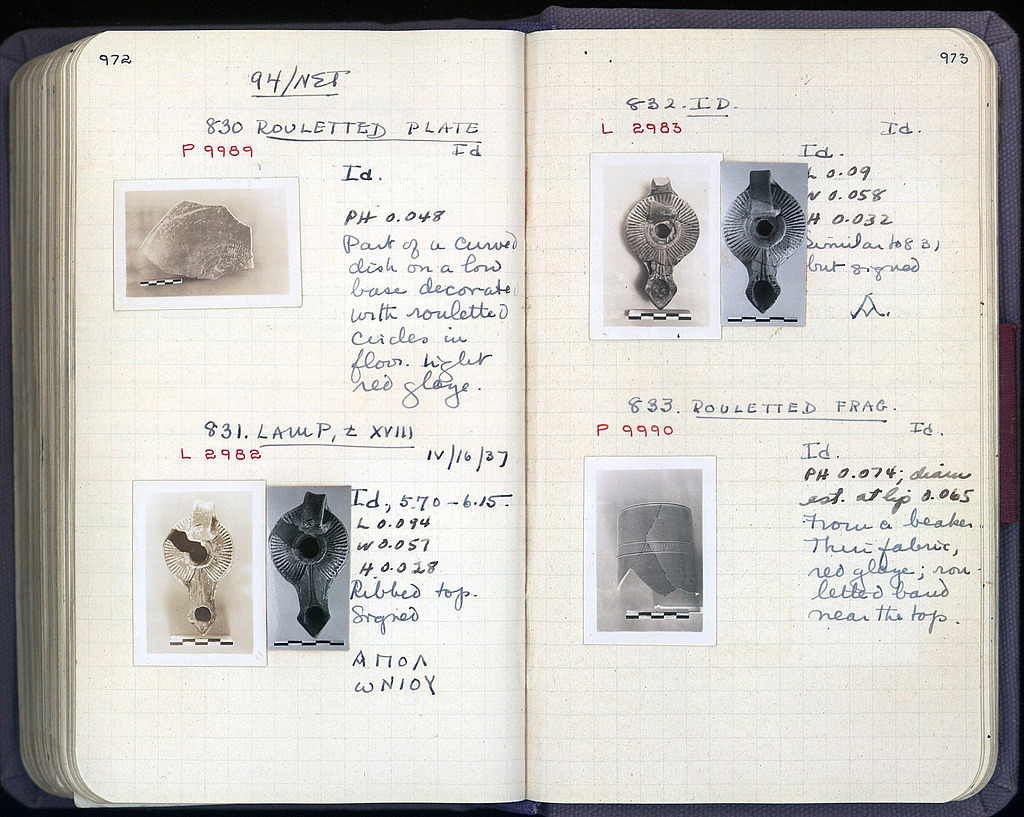 972
94/ΝΣΤ
830 ROULETTED PLATE
P 9989
Id
Id.
PH 0.048
Part of a curved
dish on a low
base decorate
with rouletted
circles in
floor. Light
red glaze.
831. LAMP, ± XVIII
L 2982
IV/16/37
Id., 5.70-6.15.
L 0.094
W 0.057
H 0.028
Ribbed top.
Signed
ΑΠΟΛ
ωΝΙΟΥ
973
832. ID.
L 2983
Id.
Id.
L 0.09
W 0.058
H 0.032
Similar to 831
but signed
Α.
833. ROULETTED FRAG.
P 9990
Id.
Id.
PH 0.074; diam
est. at lip 0.065
From a beaker.
Thin fabric,
red glaze; rou-
letted band
near the top.